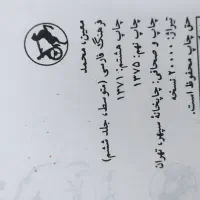 معین، محمد
فرهنگ فارسی (متوسط، جلد ششم)
چاپ هشتم: ۱۳۷۱
چاپ نهم: ۱۳۷۵
چاپ و صحافی: چاپخانهٔ سپهر، تهران
تیراژ: ۲۰۰۰۰ نسخه
حق چاپ محفوظ است.